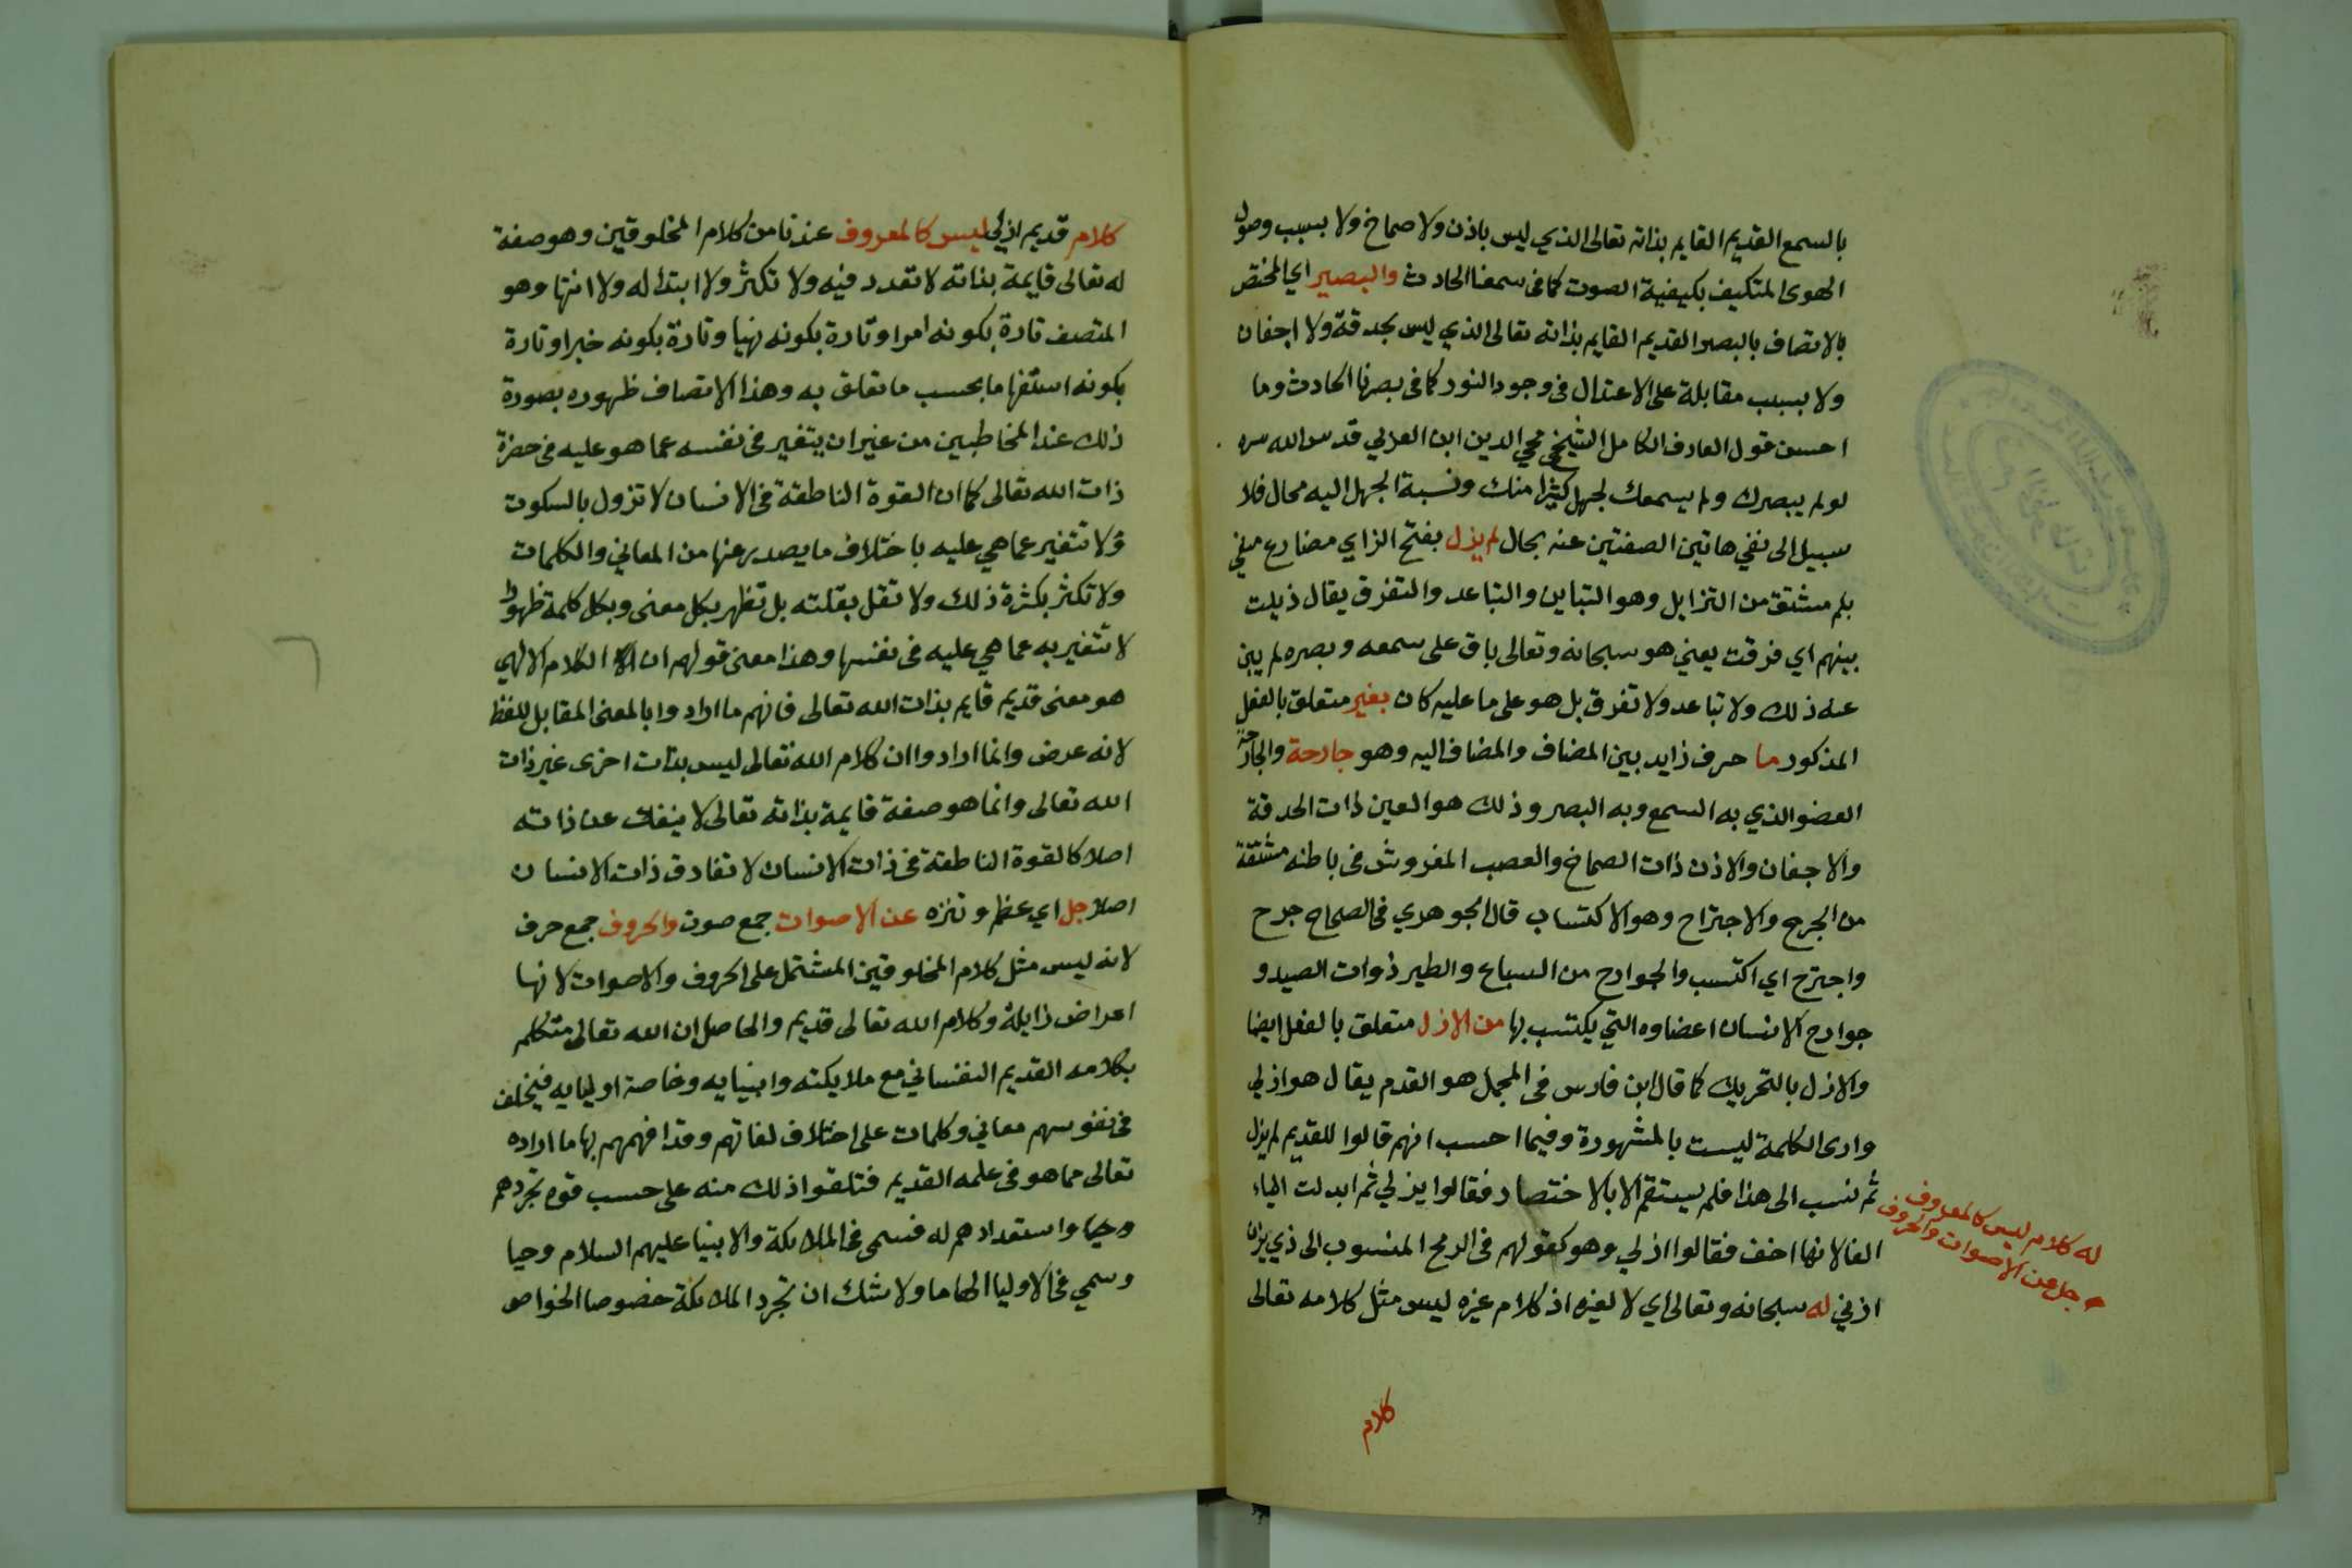 بالسمع القديم القايم بذاته تعالى الذي ليس باذن ولا صماخ ولا بسبب وصول
الهوى المتكيف بكيفية الصوت كما في سمعنا الحادث والبصير اي المختص
بالاتصاف بالبصر القديم القايم بذاته تعالى الذي ليس بحدقة ولا اجفان
ولا بسبب مقابلة على الاعتدال في وجود النور كما في بصرنا الحادث وما
احسن قول العارف الكامل الشيخ محيي الدين ابن العربي قدس الله سره
لو لم يبصرك ولم يسمعك لجهل كثيرا منك ونسبة الجهل اليه محال فلا
سبيل الى نفي هاتين الصفتين عنه بحال لم يزل بفتح الزاي مضارع منفي
بلم مشتق من التزايل وهو التباين والتباعد والتفرق يقال زيلت
بينهم اي فرقت يعني هو سبحانه وتعالى باق على سمعه وبصره لم يبن
عنه ذلك ولا تباعد ولا تفرق بل هو على ما عليه كان بغير متعلق بالفعل
المذكور ما حرف زايد بين المضاف والمضاف اليه وهو جارحة والجارحة
العضو الذي به السمع وبه البصر وذلك هو العين ذات الحدقة
والاجفان والاذن ذات الصماخ والعصب المفروش في باطنه مشتقة
من الجرح والاجتراح وهو الاكتساب قال الجوهري في الصحاح جرح
واجترح اي اكتسب والجوارح من السباع والطير ذوات الصيد و
جوارح الانسان اعضاوه التي يكتسب بها من الازل متعلق بالفعل ايضا
والازل بالتحريك كما قال ابن فارس في المجمل هو القدم يقال هو ازلي
وارى الكلمة ليست بالمشهورة وفيما احسب انهم قالوا للقديم لم يزل
ثم نسب الى هذا فلم يستقم الا بالاختصار فقالوا يزلي ثم ابدلت الياء
الفا لانها اخف فقالوا ازلي وهو كقولهم في الرمح المنسوب الى ذي يزن
ازني له سبحانه وتعالى اي لا لغيره اذ كلام غيره ليس مثل كلامه تعالى
له كلام ليس كالمعروف
جل عن الاصوات والحروف
كلام
كلام قديم ازلي ليس كالمعروف عندنا من كلام المخلوقين وهو صفة
له تعالى قايمة بذاته لا تعدد فيه ولا تكثر ولا ابتدا له ولا انتها وهو
المتصف تارة بكونه امرا وتارة بكونه نهيا وتارة بكونه خبرا وتارة
بكونه استفهاما بحسب ما تعلق به وهذا الاتصاف ظهوره بصورة
ذلك عند المخاطبين من غير ان يتغير في نفسه عما هو عليه في حضرة
ذات الله تعالى كما ان القوة الناطقة في الانسان لا تزول بالسكوت
ولا تتغير عما هي عليه باختلاف ما يصدر عنها من المعاني والكلمات
ولا تكثر بكثرة ذلك ولا تقل بقلته بل تظهر بكل معنى وبكل كلمة ظهورا
لا تتغير به عما هي عليه في نفسها وهذا معنى قولهم ان الكلام الالهي
هو معنى قديم قايم بذات الله تعالى فانهم ما ارادوا بالمعنى المقابل للفظ
لانه عرض وانما ارادوا ان كلام الله تعالى ليس بذات اخرى غير ذات
الله تعالى وانما هو صفة قايمة بذاته تعالى لا ينفك عن ذاته
اصلا كالقوة الناطقة في ذات الانسان لا تفارق ذات الانسان
اصلا جل اي عظم وتنزه عن الاصوات جمع صوت والحروف جمع حرف
لانه ليس مثل كلام المخلوقين المشتمل على الحروف والاصوات لانها
اعراض زايلة وكلام الله تعالى قديم والحاصل ان الله تعالى متكلم
بكلامه القديم النفساني مع ملايكته وانبيايه وخاصة اوليايه فيخلق
في نفوسهم معاني وكلمات على اختلاف لغاتهم وقد افهمهم بها ما اراده
تعالى مما هو في علمه القديم فتلقوا ذلك منه على حسب قوة تجردهم
واستعدادهم له فسمي في الملايكة والانبيا عليهم السلام وحيا
وسمي في الاوليا الهاما ولا شك ان تجرد الملايكة خصوصا الخواص